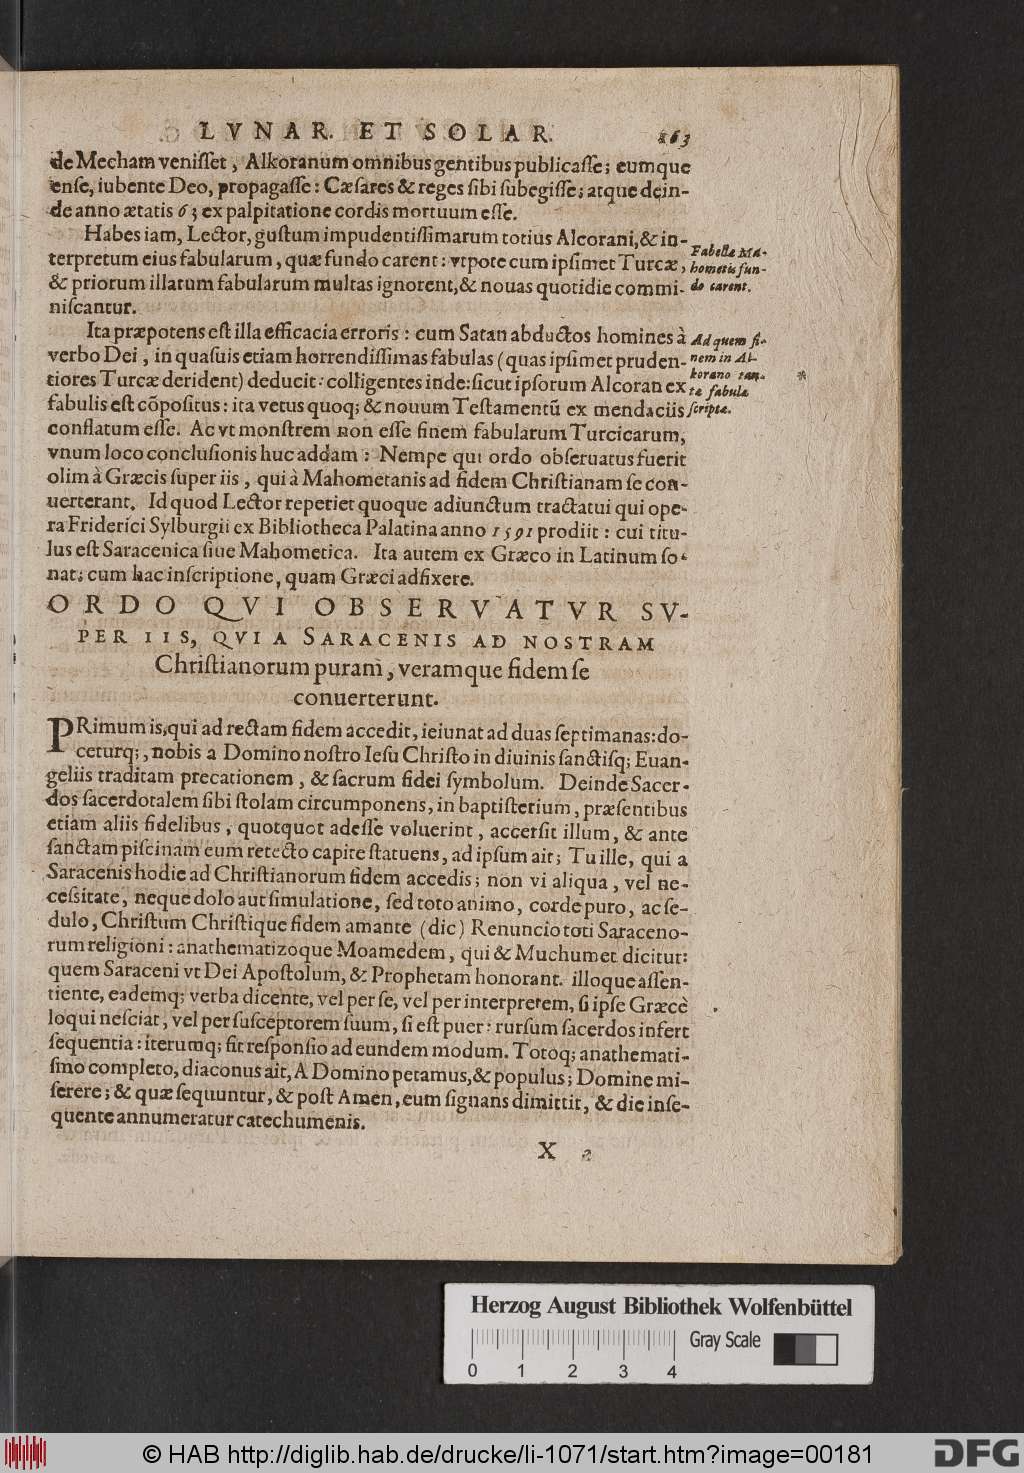 LVNAR. ET SOLAR. 163
de Mecham veniſſet, Alkoranum omnibus gentibus publicaſſe; eumque
enſe, iubente Deo, propagaſſe: Cæſares & reges ſibi ſubegiſſe; atque dein-
de anno ætatis 63 ex palpitatione cordis mortuum eſſe.
Habes iam, Lector, guſtum impudentiſſimarum totius Alcorani, & in-
terpretum eius fabularum, quæ fundo carent: vtpote cum ipſimet Turcæ,
& priorum illarum fabularum multas ignorent, & nouas quotidie commi-
niſcantur.
Fabellæ Ma-
hometis fun-
do carent.
Ita præpotens eſt illa efficacia erroris: cum Satan abductos homines à
verbo Dei, in quaſuis etiam horrendiſſimas fabulas (quas ipſimet pruden-
tiores Turcæ derident) deducit: colligentes inde: ſicut ipſorum Alcoran ex
fabulis eſt cōpoſitus: ita vetus quoq; & nouum Teſtamentū ex mendaciis
conflatum eſſe. Ac vt monſtrem non eſſe finem fabularum Turcicarum,
vnum loco concluſionis huc addam: Nempe qui ordo obſeruatus fuerit
olim à Græcis ſuper iis, qui à Mahometanis ad fidem Chriſtianam ſe con-
uerterant. Id quod Lector reperiet quoque adiunctum tractatui qui ope-
ra Friderici Sylburgii ex Bibliotheca Palatina anno 1591 prodiit: cui titu-
lus eſt Saracenica ſiue Mahometica. Ita autem ex Græco in Latinum ſo-
nat; cum hac inſcriptione, quam Græci adfixere.
Ad quem fi-
nem in Al-
korano tan-
tæ fabulæ
ſcriptæ.
ORDO QVI OBSERVATVR SV-
PER IIS, QVI A SARACENIS AD NOSTRAM
Chriſtianorum puram, veramque fidem ſe
conuerterunt.
PRimum is, qui ad rectam fidem accedit, ieiunat ad duas ſeptimanas: do-
ceturq;, nobis a Domino noſtro Ieſu Chriſto in diuinis ſanctiſq; Euan-
geliis traditam precationem, & ſacrum fidei ſymbolum. Deinde Sacer-
dos ſacerdotalem ſibi ſtolam circumponens, in baptiſterium, præſentibus
etiam aliis fidelibus, quotquot adeſſe voluerint, accerſit illum, & ante
ſanctam piſcinam eum retecto capite ſtatuens, ad ipſum ait; Tu ille, qui a
Saracenis hodie ad Chriſtianorum fidem accedis; non vi aliqua, vel ne-
ceſsitate, neque dolo aut ſimulatione, ſed toto animo, corde puro, ac ſe-
dulo, Chriſtum Chriſtique fidem amante (dic) Renuncio toti Saraceno-
rum religioni: anathematizoque Moamedem, qui & Muchumet dicitur:
quem Saraceni vt Dei Apoſtolum, & Prophetam honorant. illoque aſſen-
tiente, eademq; verba dicente, vel per ſe, vel per interpretem, ſi ipſe Græcè
loqui neſciat, vel per ſuſceptorem ſuum, ſi eſt puer: rurſum ſacerdos infert
ſequentia: iterumq; fit reſponſio ad eundem modum. Totoq; anathemati-
ſmo completo, diaconus ait, A Domino petamus, & populus; Domine mi-
ſerere; & quæ ſequuntur, & poſt Amen, eum ſignans dimittit, & die inſe-
quente annumeratur catechumenis.
X 2
Herzog August Bibliothek Wolfenbüttel
Gray Scale
0 1 2 3 4
© HAB http://diglib.hab.de/drucke/li-1071/start.htm?image=00181
DFG